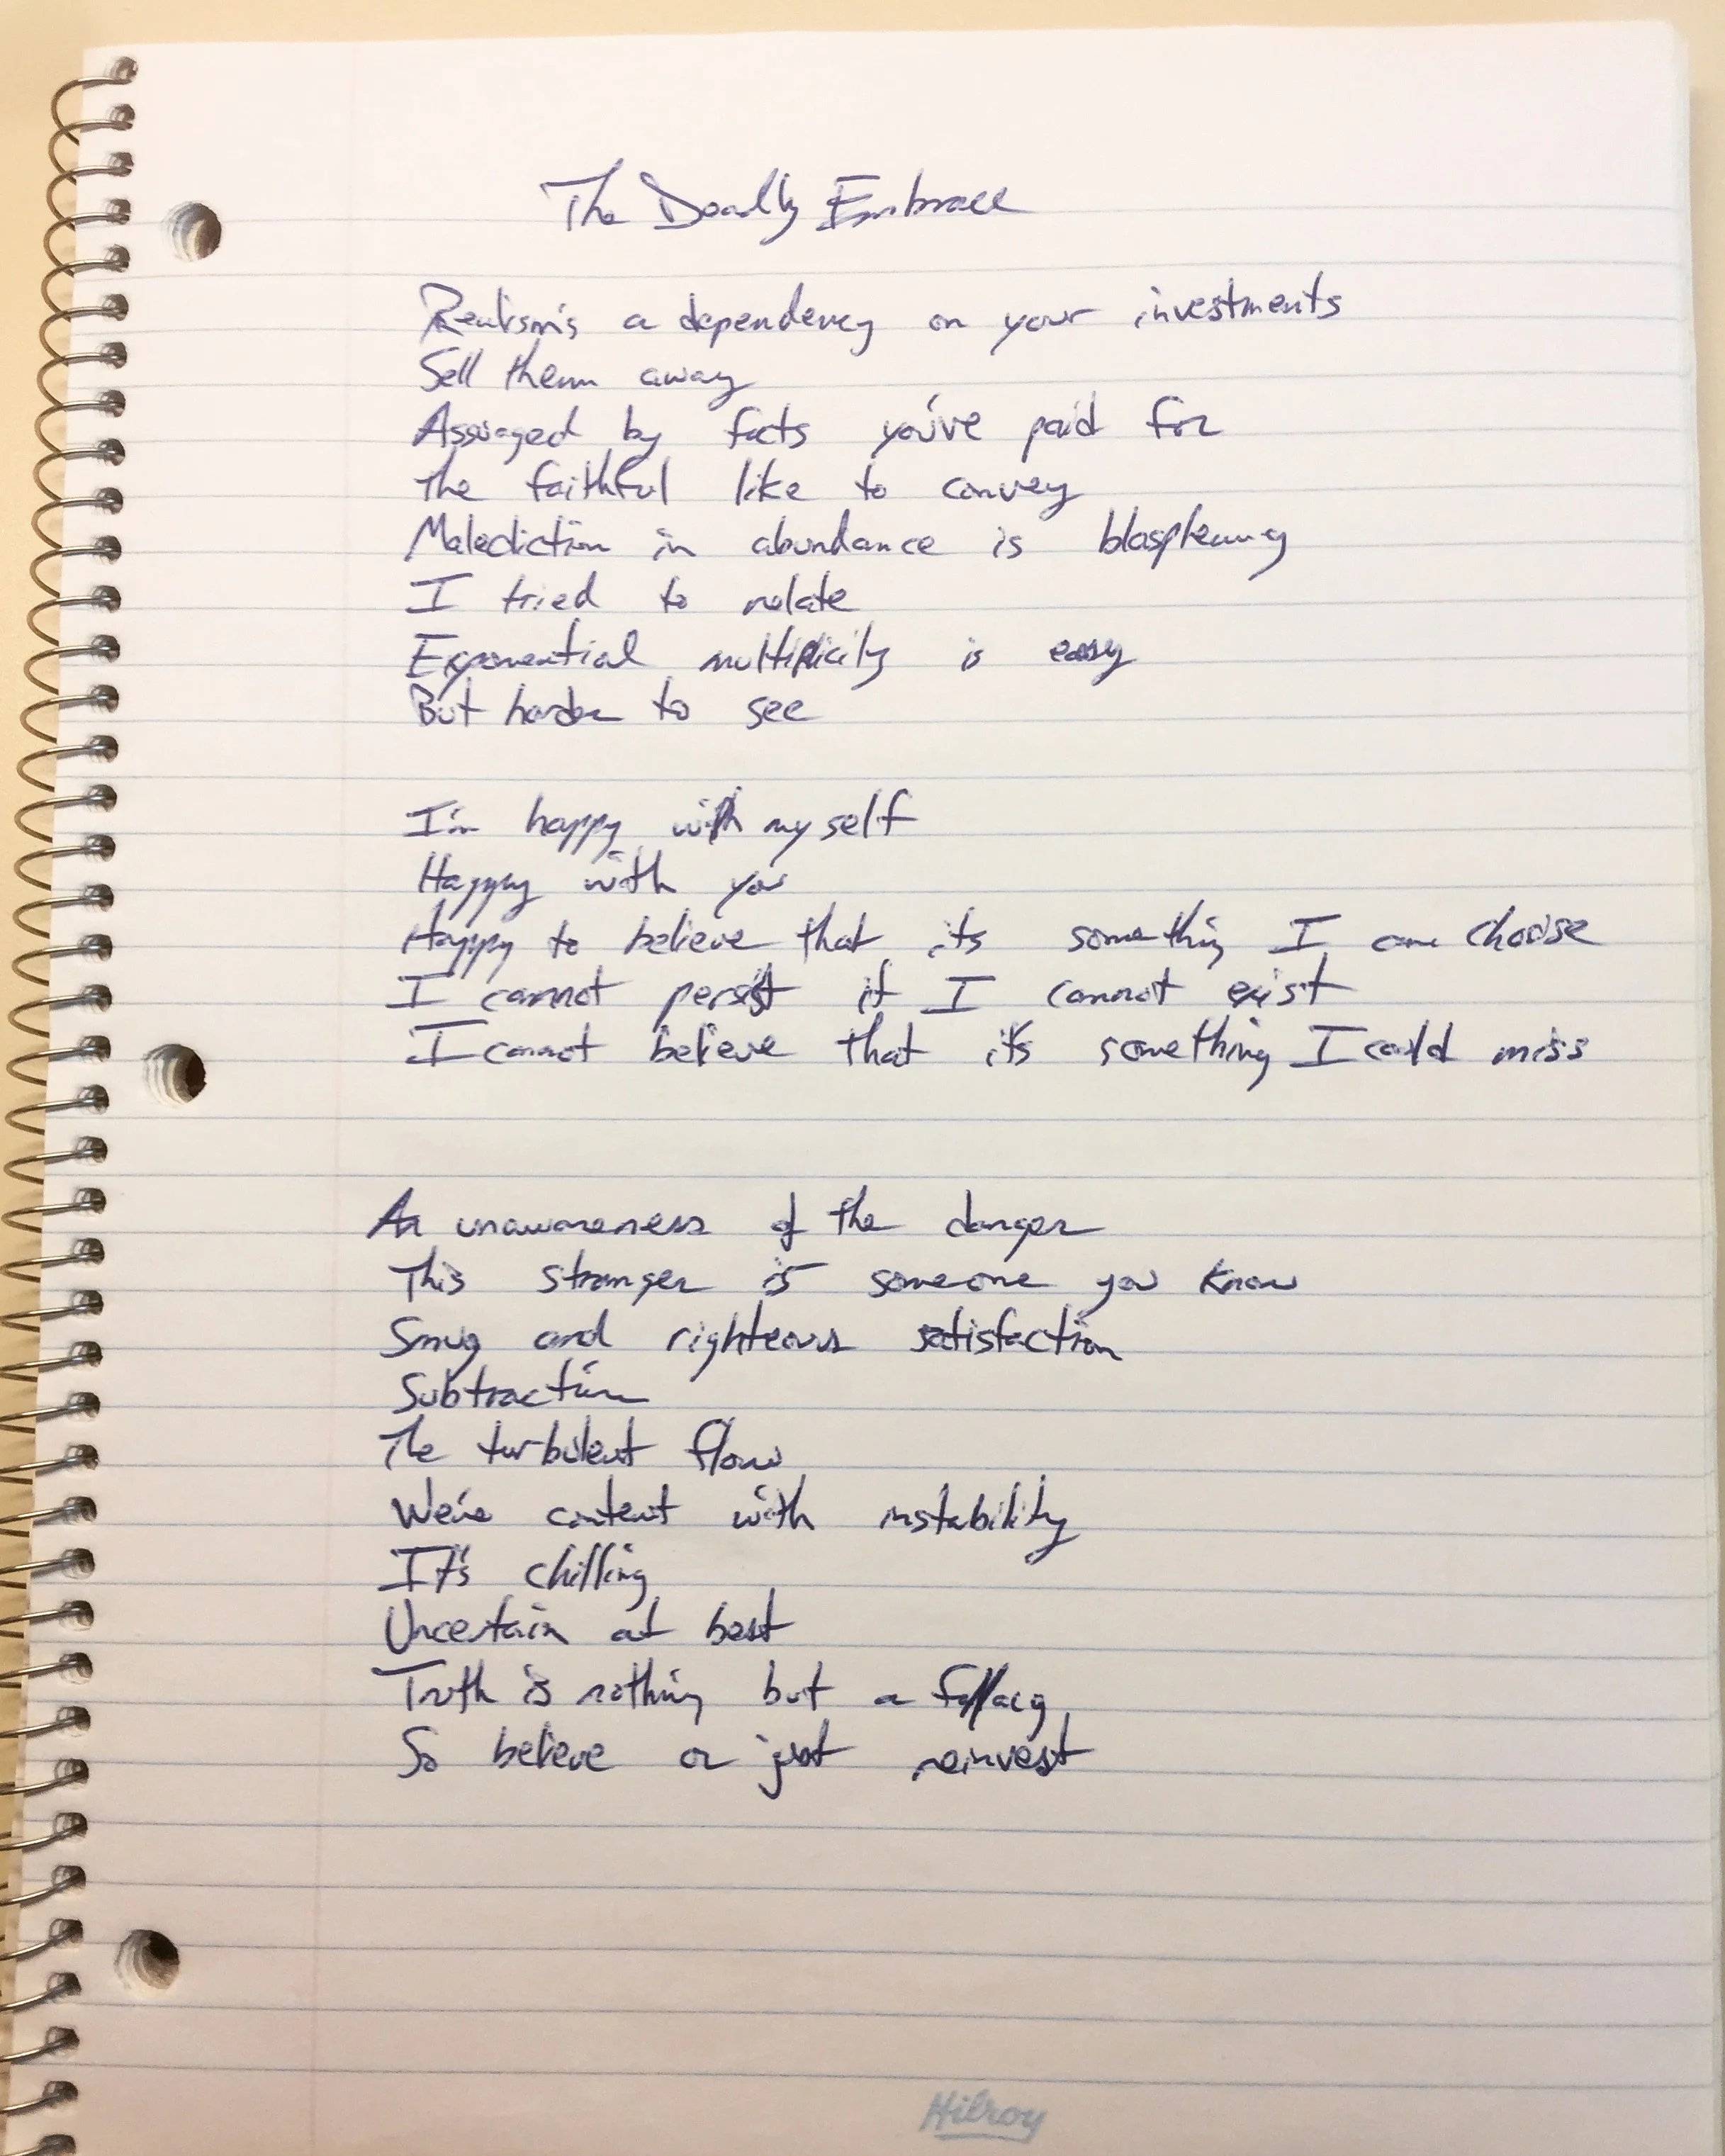 The Deadly Embrace
Realism's a dependency on your investments
Sell them away
Assuaged by facts you've paid for
The faithful like to convey
Malediction in abundance is blasphemy
I tried to relate
Exponential multiplicity is easy
But harder to see
I'm happy with myself
Happy with you
Happy to believe that its something I can choose
I cannot persist if I cannot exist
I cannot believe that it's something I could miss
An unawareness of the danger
This stranger is someone you know
Smug and righteous satisfaction
Subtraction
The turbulent flow
We're content with instability
It's chilling
Uncertain at best
Truth is nothing but a fallacy
So believe or just reinvest
Hilroy